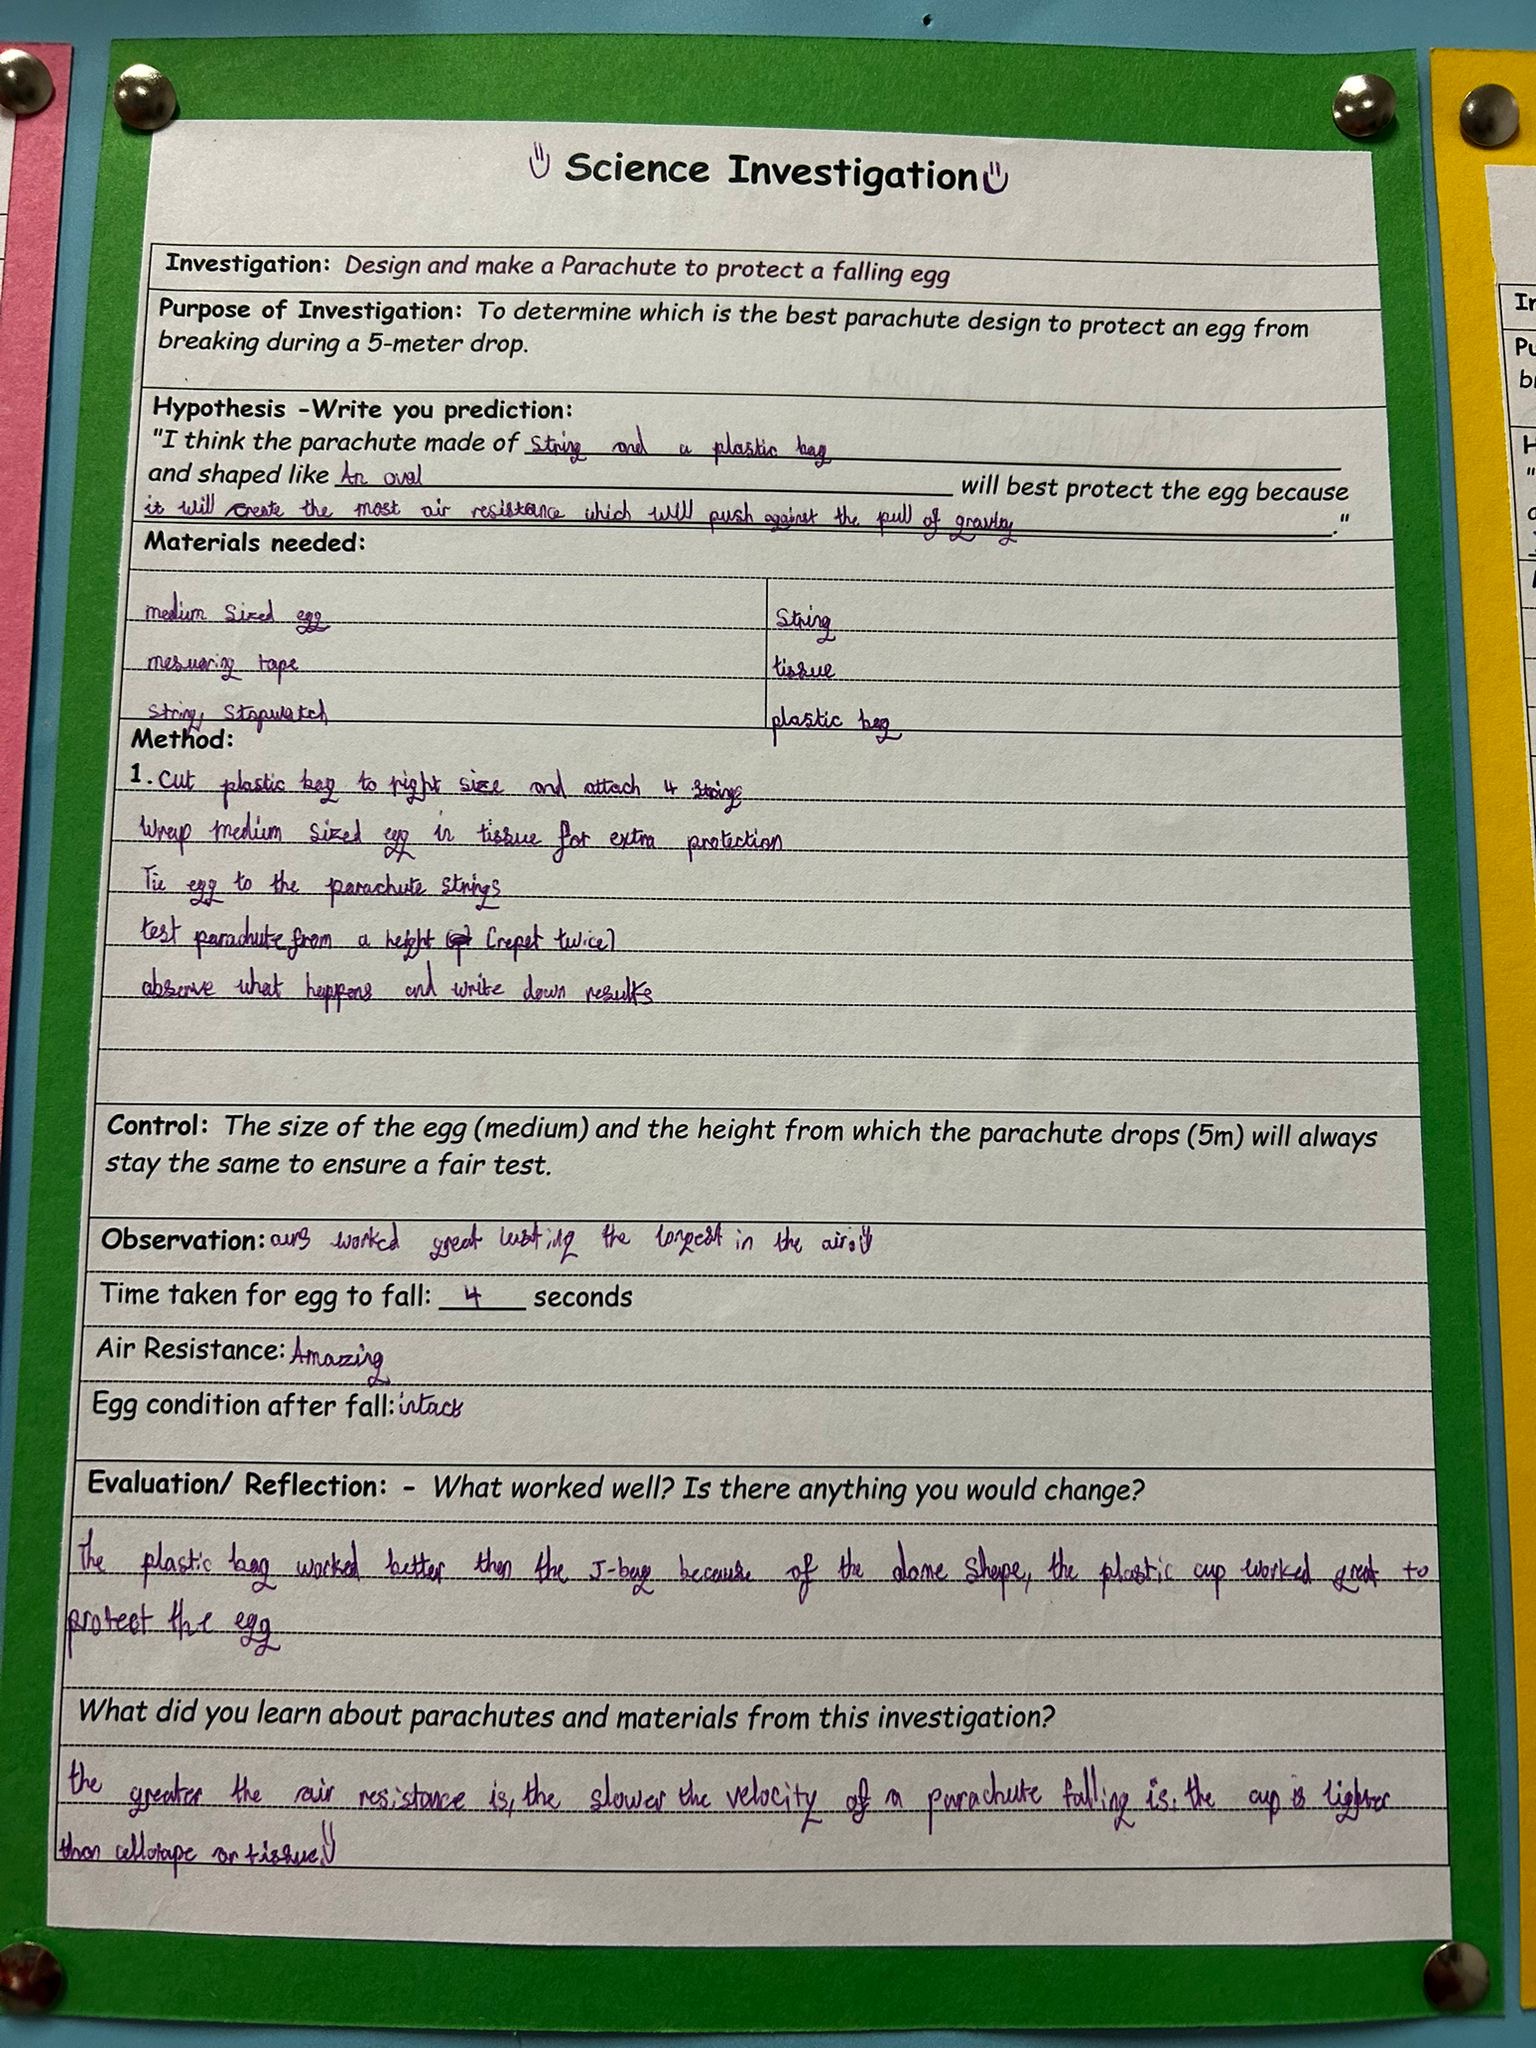 Science Investigation
Investigation: Design and make a Parachute to protect a falling egg
Purpose of Investigation: To determine which is the best parachute design to protect an egg from
breaking during a 5-meter drop.
Hypothesis -Write you prediction:
"I think the parachute made of String and a plastic bag
and shaped like An oval will best protect the egg because
it will create the most air resistance which will push against the pull of gravity ."
Materials needed:
medium sized egg
String
mesuaring tape
tissue
string, Stopwatch
plastic bag
Method:
1. Cut plastic bag to right size and attach 4 strings
Wrap medium sized egg in tissue for extra protection
Tie egg to the parachute strings
test parachute from a height (repet twice)
observe what happens and write down results
Control: The size of the egg (medium) and the height from which the parachute drops (5m) will always
stay the same to ensure a fair test.
Observation: ours worked great lasting the longest in the air
Time taken for egg to fall: 4 seconds
Air Resistance: Amazing
Egg condition after fall: intact
Evaluation/ Reflection: - What worked well? Is there anything you would change?
The plastic bag worked better then the J-bag because of the dome shape, the plastic cup worked great to
protect the egg
What did you learn about parachutes and materials from this investigation?
the greater the air resistance is, the slower the velocity of a parachute falling is. the cup is lighter
than cellotape or tissue!
In
Pu
br
H
"